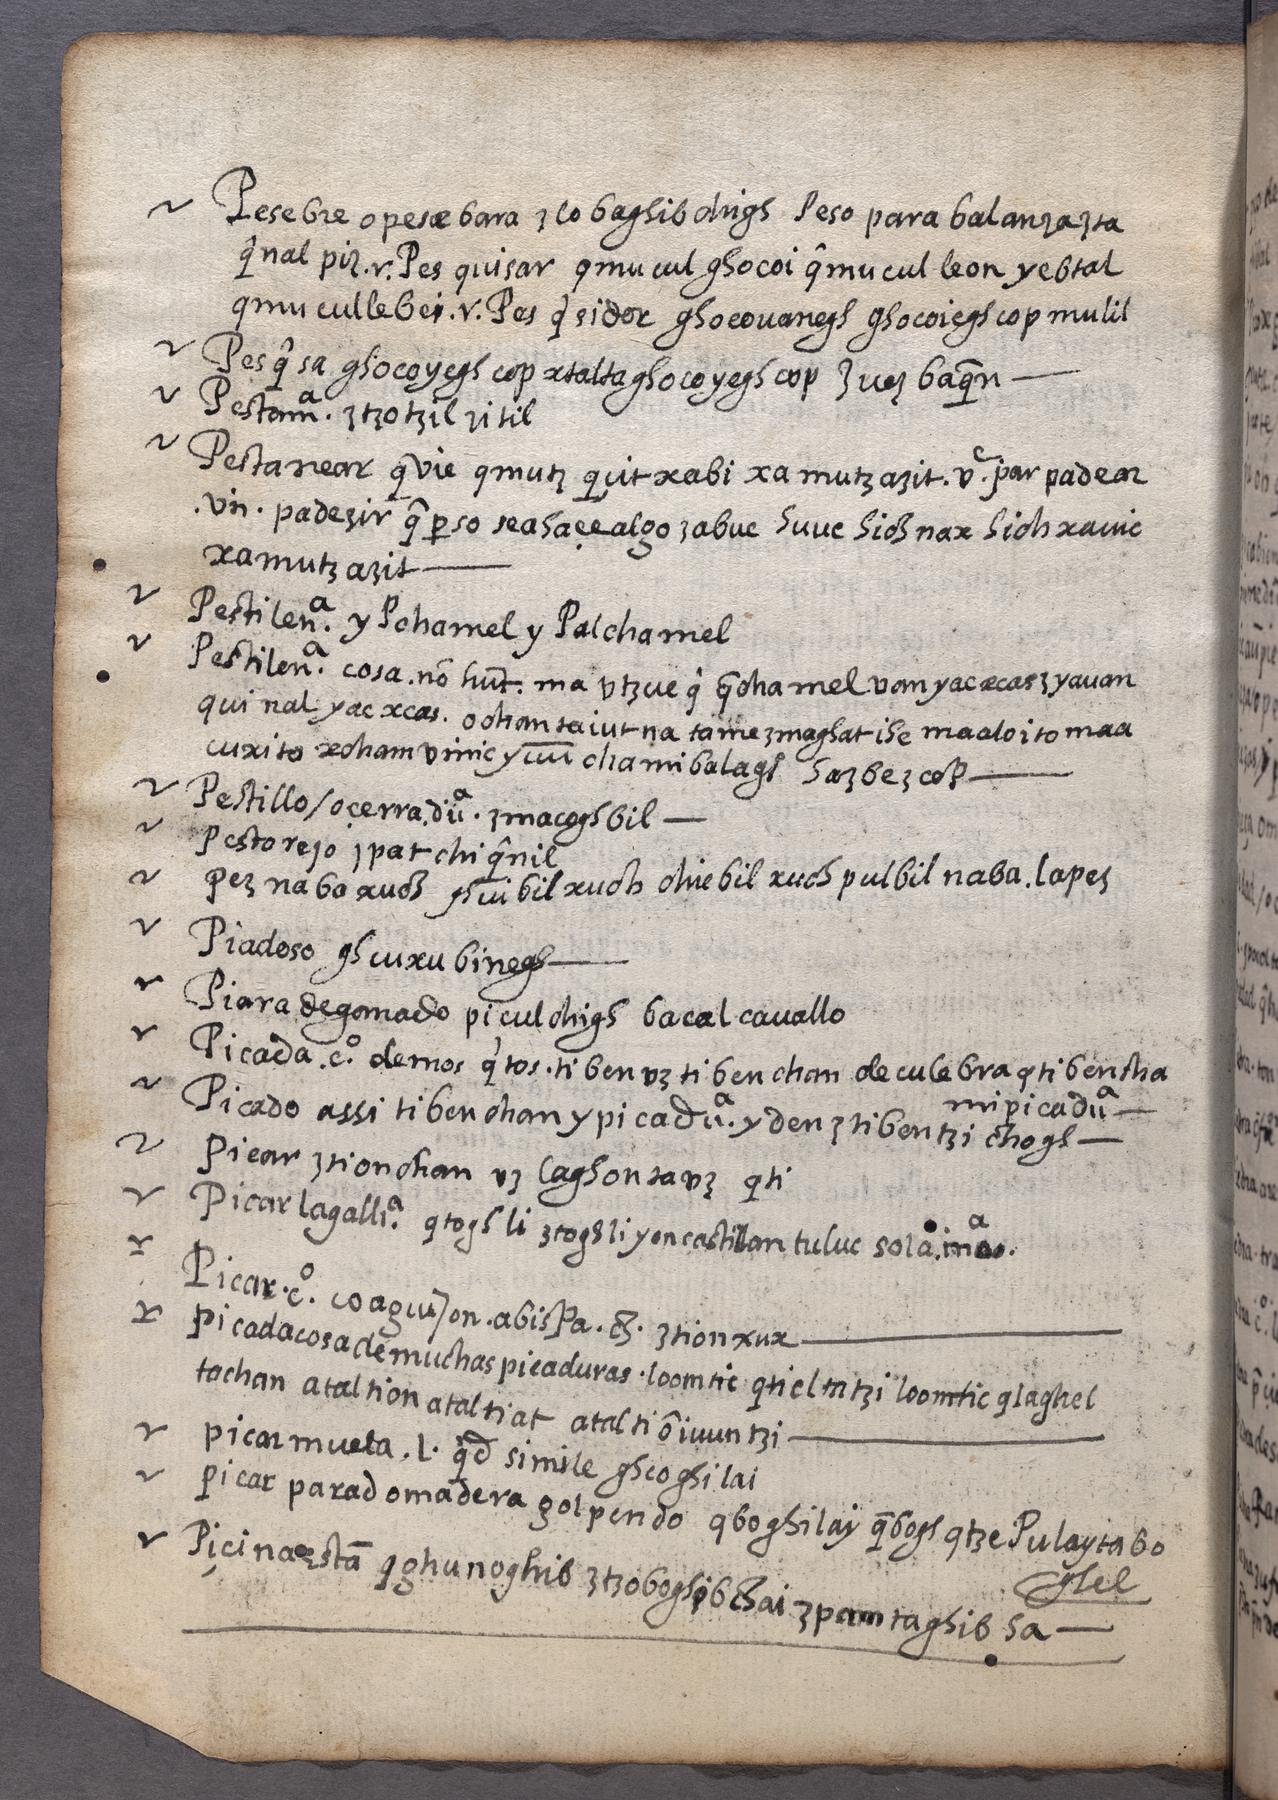 Pesebre o pesæbara ʒlo baghib chigh Peso para balanʒa ʒta
q̂nal piʒ .v. Pes quisar qmucul ghocoi q̂mucul leon yebtal
qmucullebei .v. Pes q̂ sidor ghocouanegh ghocoiegh cop mulil
Pesq̂sa ghocoyegh cop xtalta ghocoyegh cop ʒueʒ baq̄n —
Pestam.ª ʒtʒotʒil ʒitil
Pestanear q̄vie qmutʒ quit xabi xa mutʒaʒit. v.ᶜ par padear
.vn. padeʒir q̂ pso seahaçe algo ʒabue huuc hich nax hich xauic
xamutʒaʒit —
Pestilen.ª y Pchamel y Palchamel
Pestilen.ª cosa. nō hut. ma vtʒue q̂ q̄chamel van yac xcas ʒyavan
qui nal yac xcas. ochan ta iut na tame ʒmaghat ihe maaloito maa
cuxito xcham vinic y chamibalagh haʒbeʒ cop —
Pestillo / o çerradū.ª ʒmacoghbil —
Pestorejo ʒpat chiq̂nil
Peʒ naba xuch bil xuch chiebil xuch pulbil naba. lapeʒ
Piadoso ghcuxubinegh —
Piara de gomado piculchigh bacal cauallo
Picada .c.º demos q̂tos. tiben vʒ tiben chan de culebra qtibencha
Picado assi tibenchan y picadū.ª y den ʒtibentʒi chogh —
mi picadū.ª —
Picar ʒtionchan vʒ laghon ta vʒ qti
Picar lagalli.ª qtogh li ʒtogh li yon castillan tuluc sola.
Picar .c.º co aguijon. abispa. &. ʒtionxux —
picadacosa de muchas picaduras. loomtic qticl tntʒi loomtic qlaghel
tachan ataltion ataltiat atalti tʒi —
picar muela .l. q̂d simile ghcoghilai
picar parad o madera golpendo qboghilay q̄bogh qtʒe Pulaytabo
ghel
Piçina estā qghunoghib ʒtʒoboghib chai ʒpamtaghib ha —